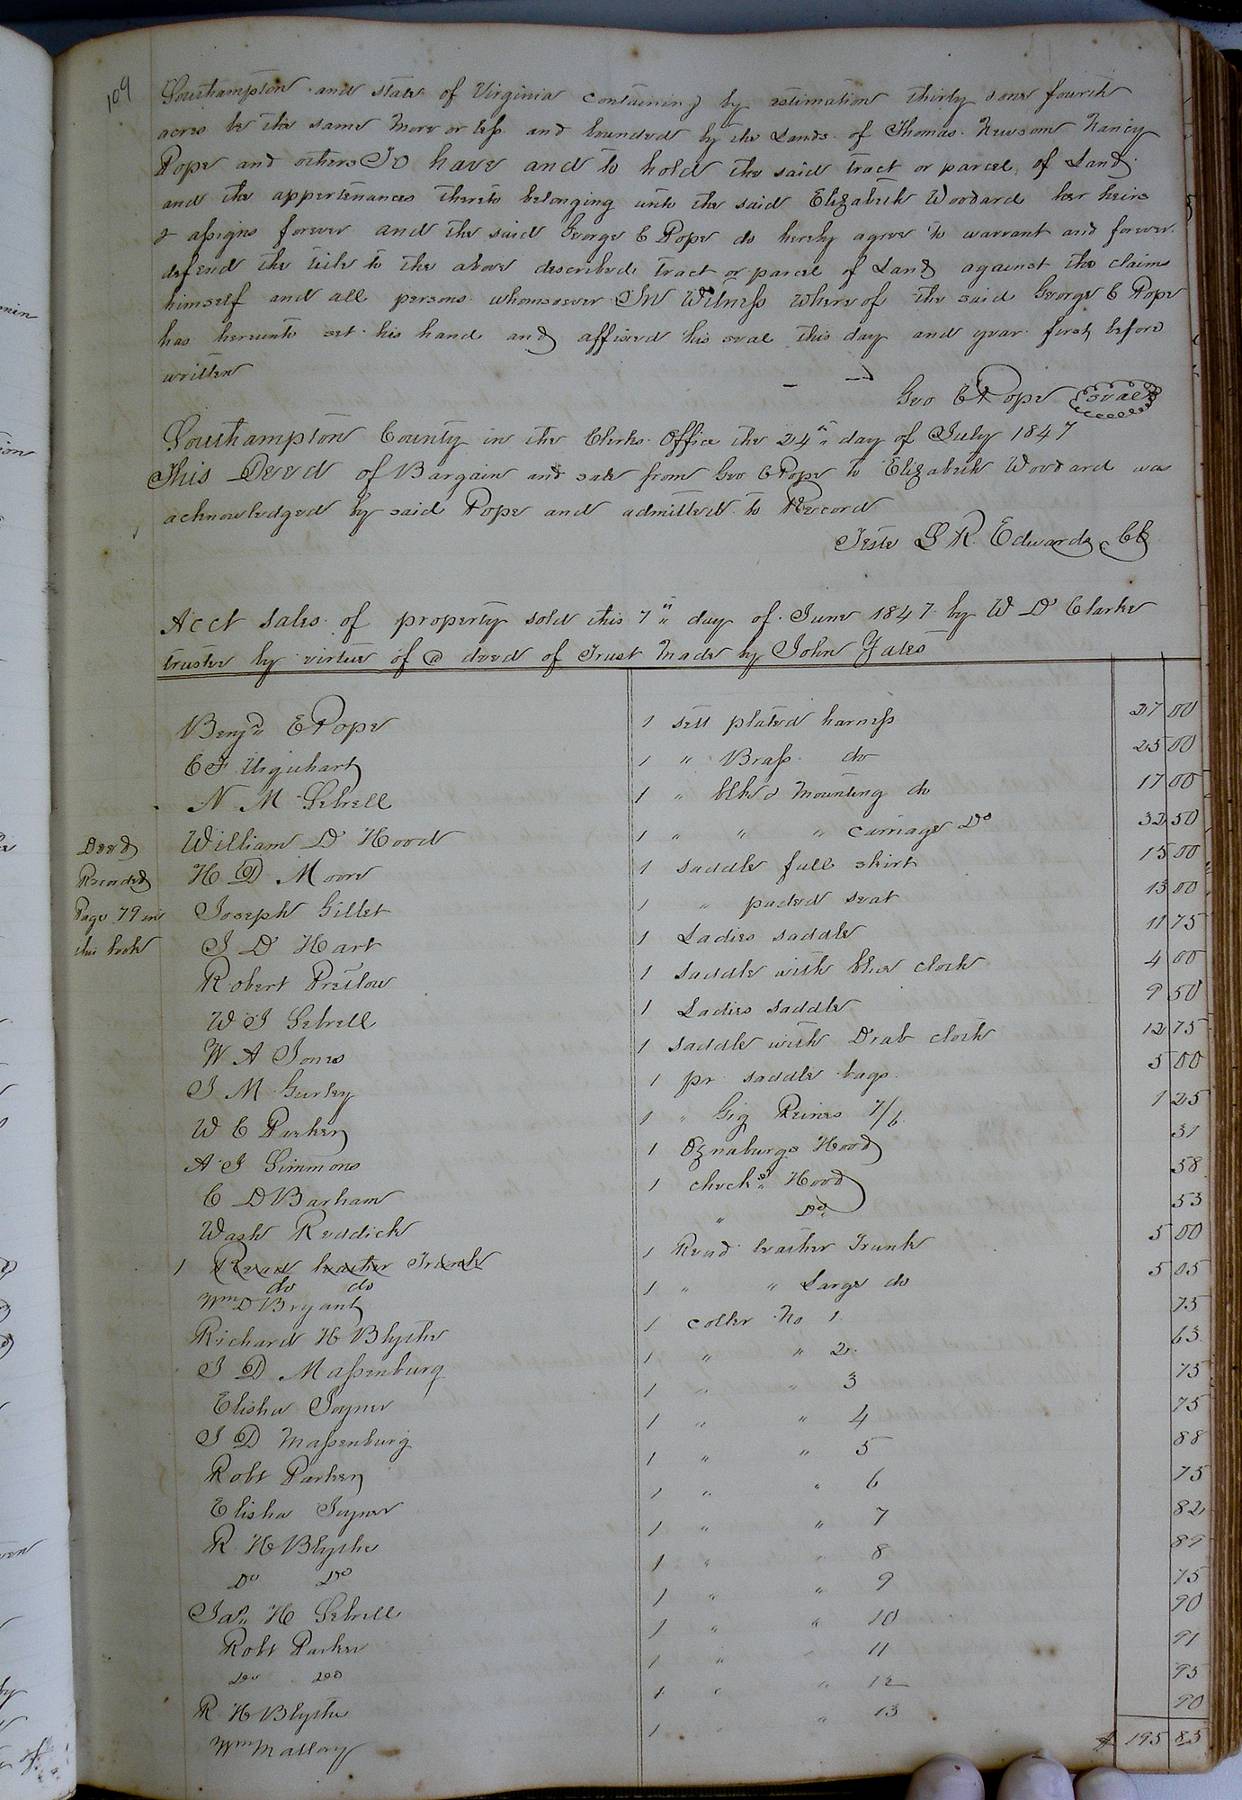 109
Southampton and state of Virginia containing by estimation thirty one fourth
acres be the same more or less and bounded by the Lands of Thomas Newsom Nancy
Pope and others To have and to hold the said tract or parcel of Land
and the appertenances thereto belonging unto the said Elizabeth Woodard her heirs
& assigns forever and the said George E Pope do hereby agree to warrant and forever
defend the title to the above described tract or parcel of Land against the claims
himself and all persons whomsoever In Witness whereof the said George E Pope
has hereunto set his hand and affixed his seal this day and year first before
written
Geo E Pope seal
Southampton County in the Clerks Office the 24th day of July 1847
This Deed of Bargain and sale from Geo E Pope to Elizabeth Woodard was
acknowledged by said Pope and admitted to Record
Teste L R Edwards Clk
Acct sales of property sold this 7th day of June 1847 by W D Clarke
trustee by virtue of a deed of Trust made by John Yates
Deed
Recorded
Page 79 in
this book
Benjn E Pope 1 sett plated harness 27 00
C F Urquhart 1 " Brass do 25 00
N M Sebrell 1 " blkd Mounting do 17 00
William D Hood 1 " " " carriage Do 32 50
H D Moore 1 saddle full skirt 15 00
Joseph Gillet 1 " paded seat 13 00
J D Hart 1 Ladies saddle 11 75
Robert Pretlow 1 saddle with blue cloth 4 00
W J Sebrell 1 Ladies saddle 9 50
W A Jones 1 saddle with Drab cloth 12 75
J M Gurley 1 pr saddle bags 5 00
W C Parker 1 " Gig Reines 7/6 1 25
A J Simmons 1 Oznaburgs Hood 31
C D Barham 1 check Hood 58
Wash Reddick " Do 53
1 Read leather Trunk 1 Read leather Trunk 5 00
do do
Wm D Bryant 1 " " Large do 5 05
Richard H Blythe 1 coller No 1 75
J D Massenburg 1 " " 2 63
Elisha Joyner 1 " " 3 75
J D Massenburg 1 " " 4 75
Robt Parker 1 " " 5 88
Elisha Joyner 1 " " 6 75
R H Blythe 1 " " 7 82
Do Do 1 " " 8 89
Jas H Sebrell 1 " " 9 75
Robt Parker 1 " " 10 90
Do Do 1 " " 11 91
R H Blythe 1 " " 12 95
Wm Mallory 1 " " 13 90
$ 195 83